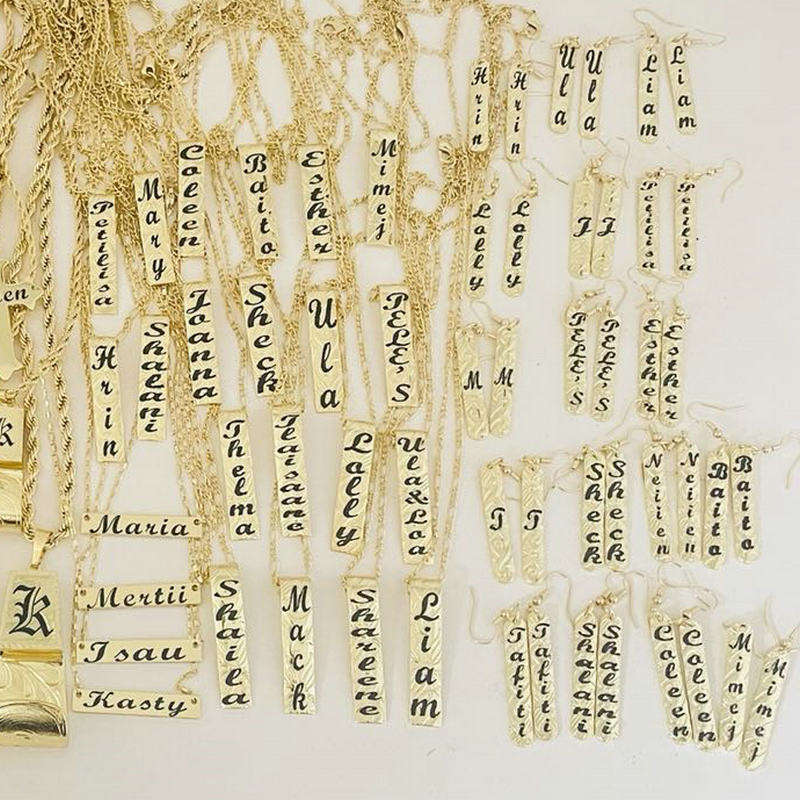 Hrin
Hrin
Ula
Ula
Liam
Liam
Petilisa
Mary
Coleen
Baito
Esther
Mimej
Lolly
Lolly
J
J
Petilisa
Petilisa
en
Hrin
Shalani
Joanna
Sheck
Ula
PELE'S
M
M
PELE'S
PELE'S
Esther
Esther
k
Thelma
Ilaisaane
Lolly
Ula&Loa
T
T
Sheck
Sheck
Neiien
Neiien
Baito
Baito
Maria
K
Mertii
Isau
Kasty
Shaila
Mack
Sharlene
Liam
Tafiti
Tafiti
Shalani
Shalani
Coleen
Coleen
Mimej
Mimej